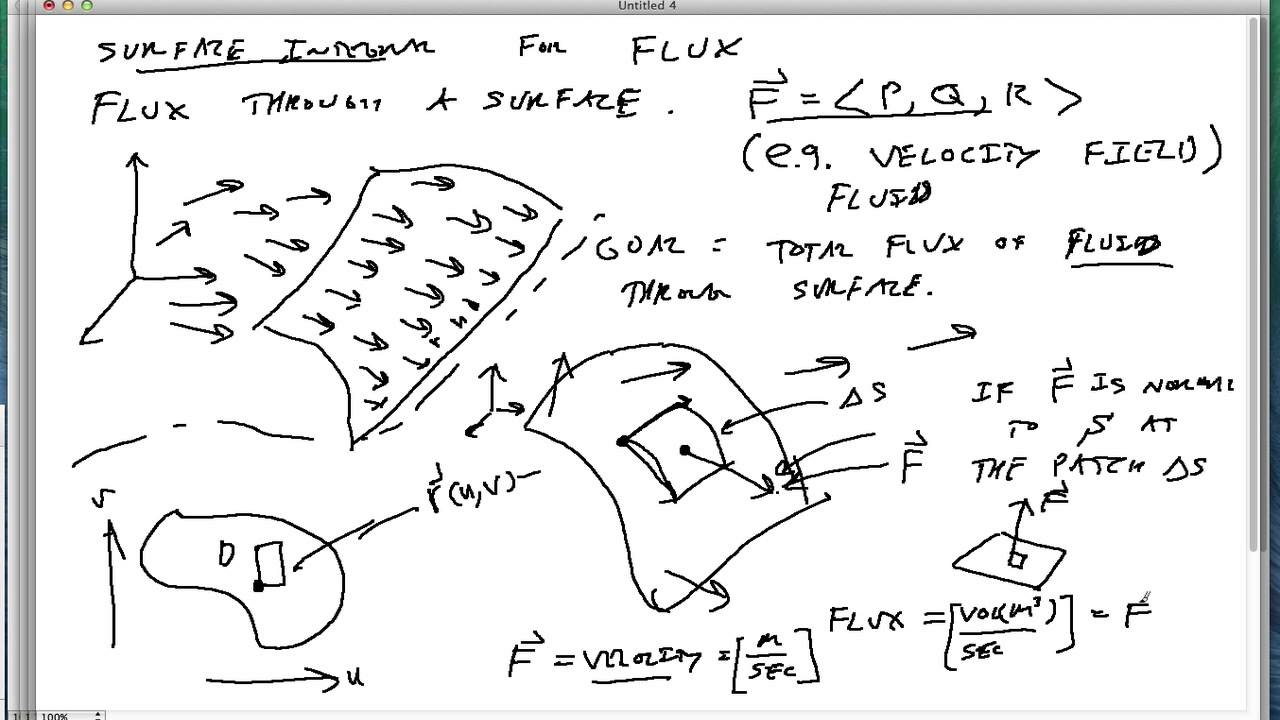 Untitled 4
SURFACE INTEGRAL FOR FLUX
FLUX THROUGH A SURFACE.
F = < P, Q, R >
(e.g. VELOCITY FIELD)
FLUID
GOAL = TOTAL FLUX OF FLUID
THROUGH SURFACE.
ΔS
IF F IS NORMAL
TO S AT
THE PATCH ΔS
F
F
r(u,v)
v
D
u
F = VELOCITY = [M/SEC]
FLUX = [VOL(M³)/SEC] = F
100%